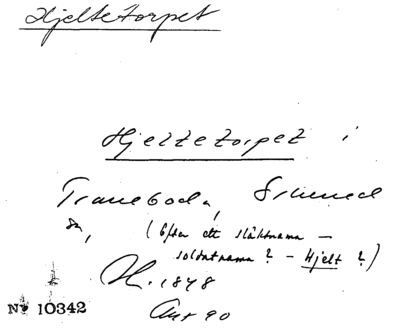 Hjeltetorpet
Hjeltetorpet i
Traneboda,
sn, (Efter ett släktnamn –
soldatnamn ? – Hjelt ?)
1848
No 10342